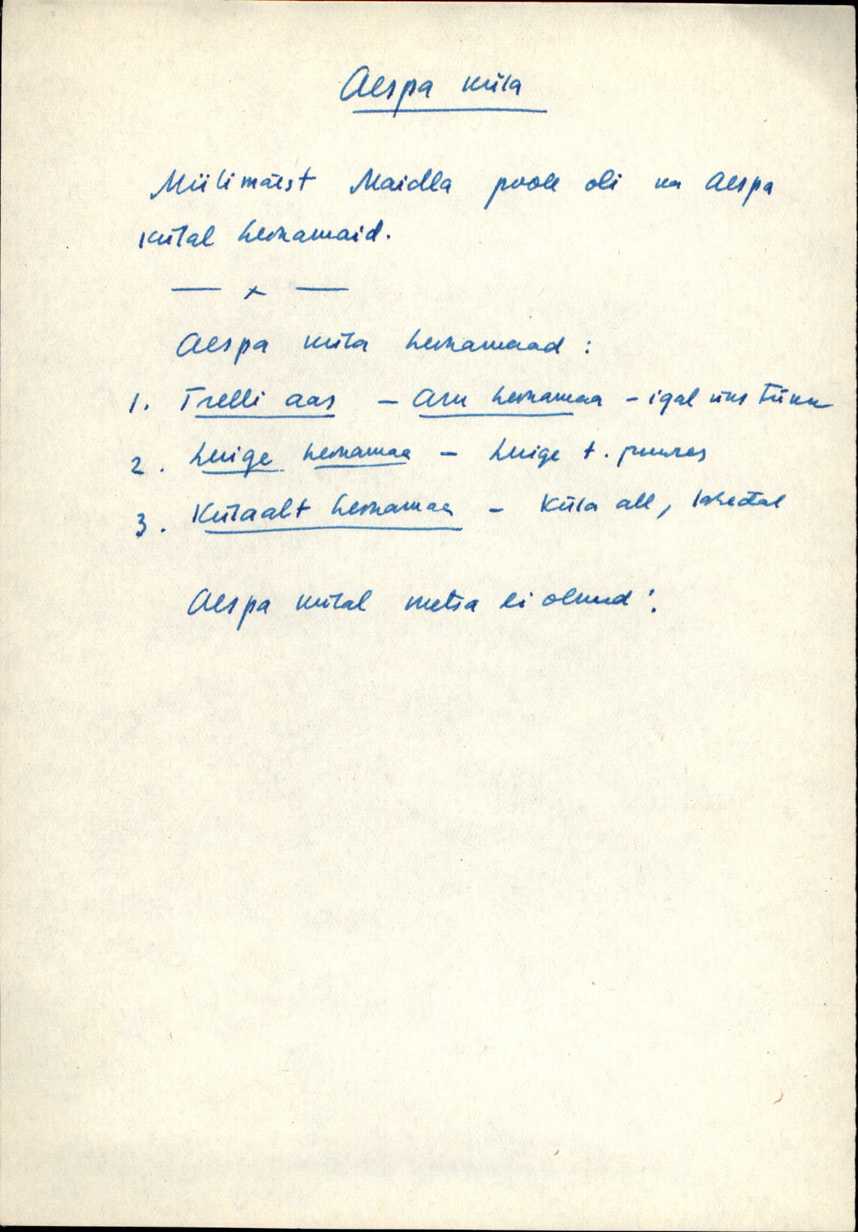 Aespa küla
Mülimäest Maidla poole oli ka Aespa
külal heinamaid.
— x —
Aespa küla heinamaad :
1. Trelli aas – Aru heinamaa – igal üks tükk
2. Luige heinamaa – Luige t. juures
3. Külaalt heinamaa – Küla all, lahedal
Aespa külal metsa ei olnud!